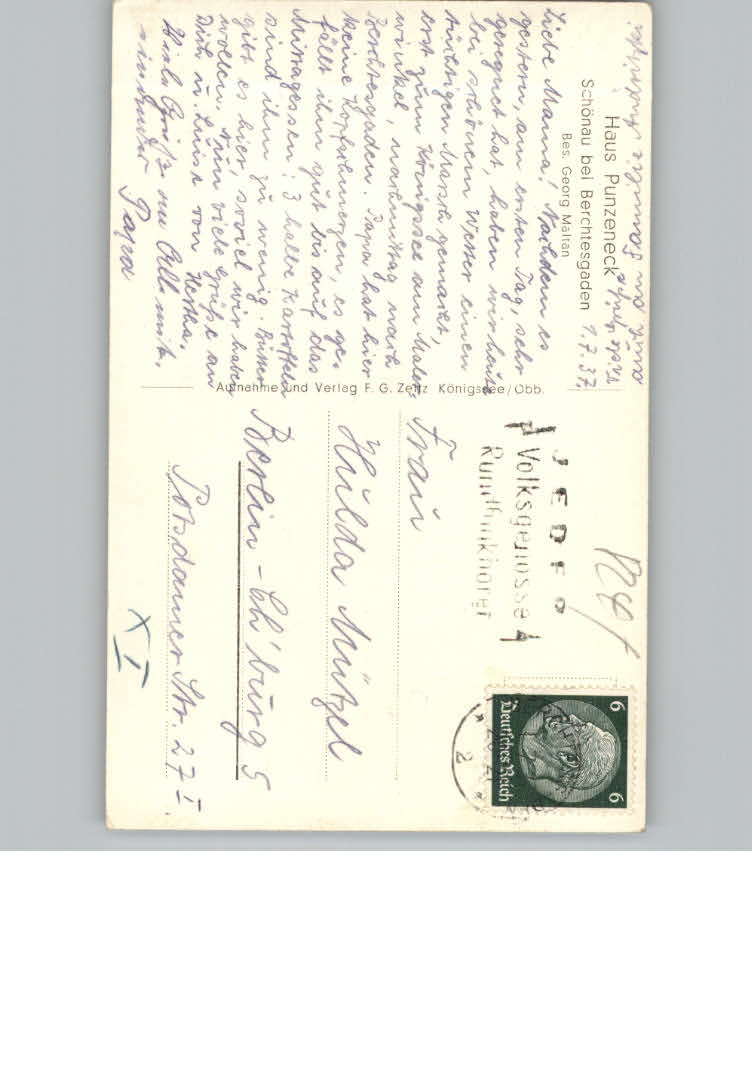 Haus Punzeneck
Schönau bei Berchtesgaden
Bes. Georg Maltan
1.7.37.
Liebe Mama! Nachdem es
gestern, am ersten Tag, sehr
geregnet hat, haben wir heute
bei schönem Wetter einen
tüchtigen Marsch gemacht,
erst zum Königssee am Maler-
winkel, nachmittag nach
Berchtesgaden. Papa hat hier
keine Kopfschmerzen, es ge-
fällt ihm gut bis auf das
Mittagessen: 3 halbe Kartoffeln
sind ihm zu wenig. Butter
gibt es hier, soviel wir haben
wollen. Nun viele Grüße an
Dich u. Luise von Hertha.
Viele Grüße an Alle mit.
Papa
Grüße an Familie
Aufnahme und Verlag F. G. Zeitz Königssee/Obb.
JEDER
Volksgenosse
Rundfunkhörer
6 6
Deutsches Reich
Frau
Hulda Mützel
Berlin-Ch'burg 5
Potsdamer Str. 27 I
XI